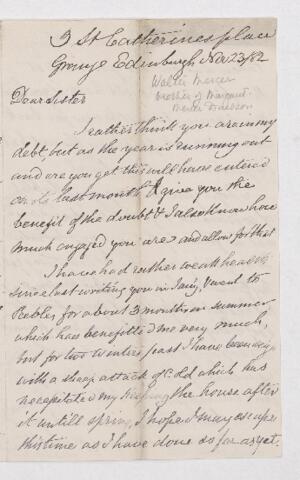 3 St Catherines place
Grange Edinburgh Nov 23/82
Walter Mercer
brother of Margaret
Mercer
Dear Sister
I rather think you are in my
debt, but as the year is running out
and are you get this will have entered
on its last month I give you the
benefit of the doubt & I also know how
much engaged you are and allow for that
I have had rather weak health
since last writing you in Jany, I went to
Peebles for about 3 months in summer
which has benefitted me very much,
but for two winters past I have been
with a sharp attack of Cold which has
necesitated my keeping the house after
it untill spring, I hope I may escape
this time as I have done so far as yet,